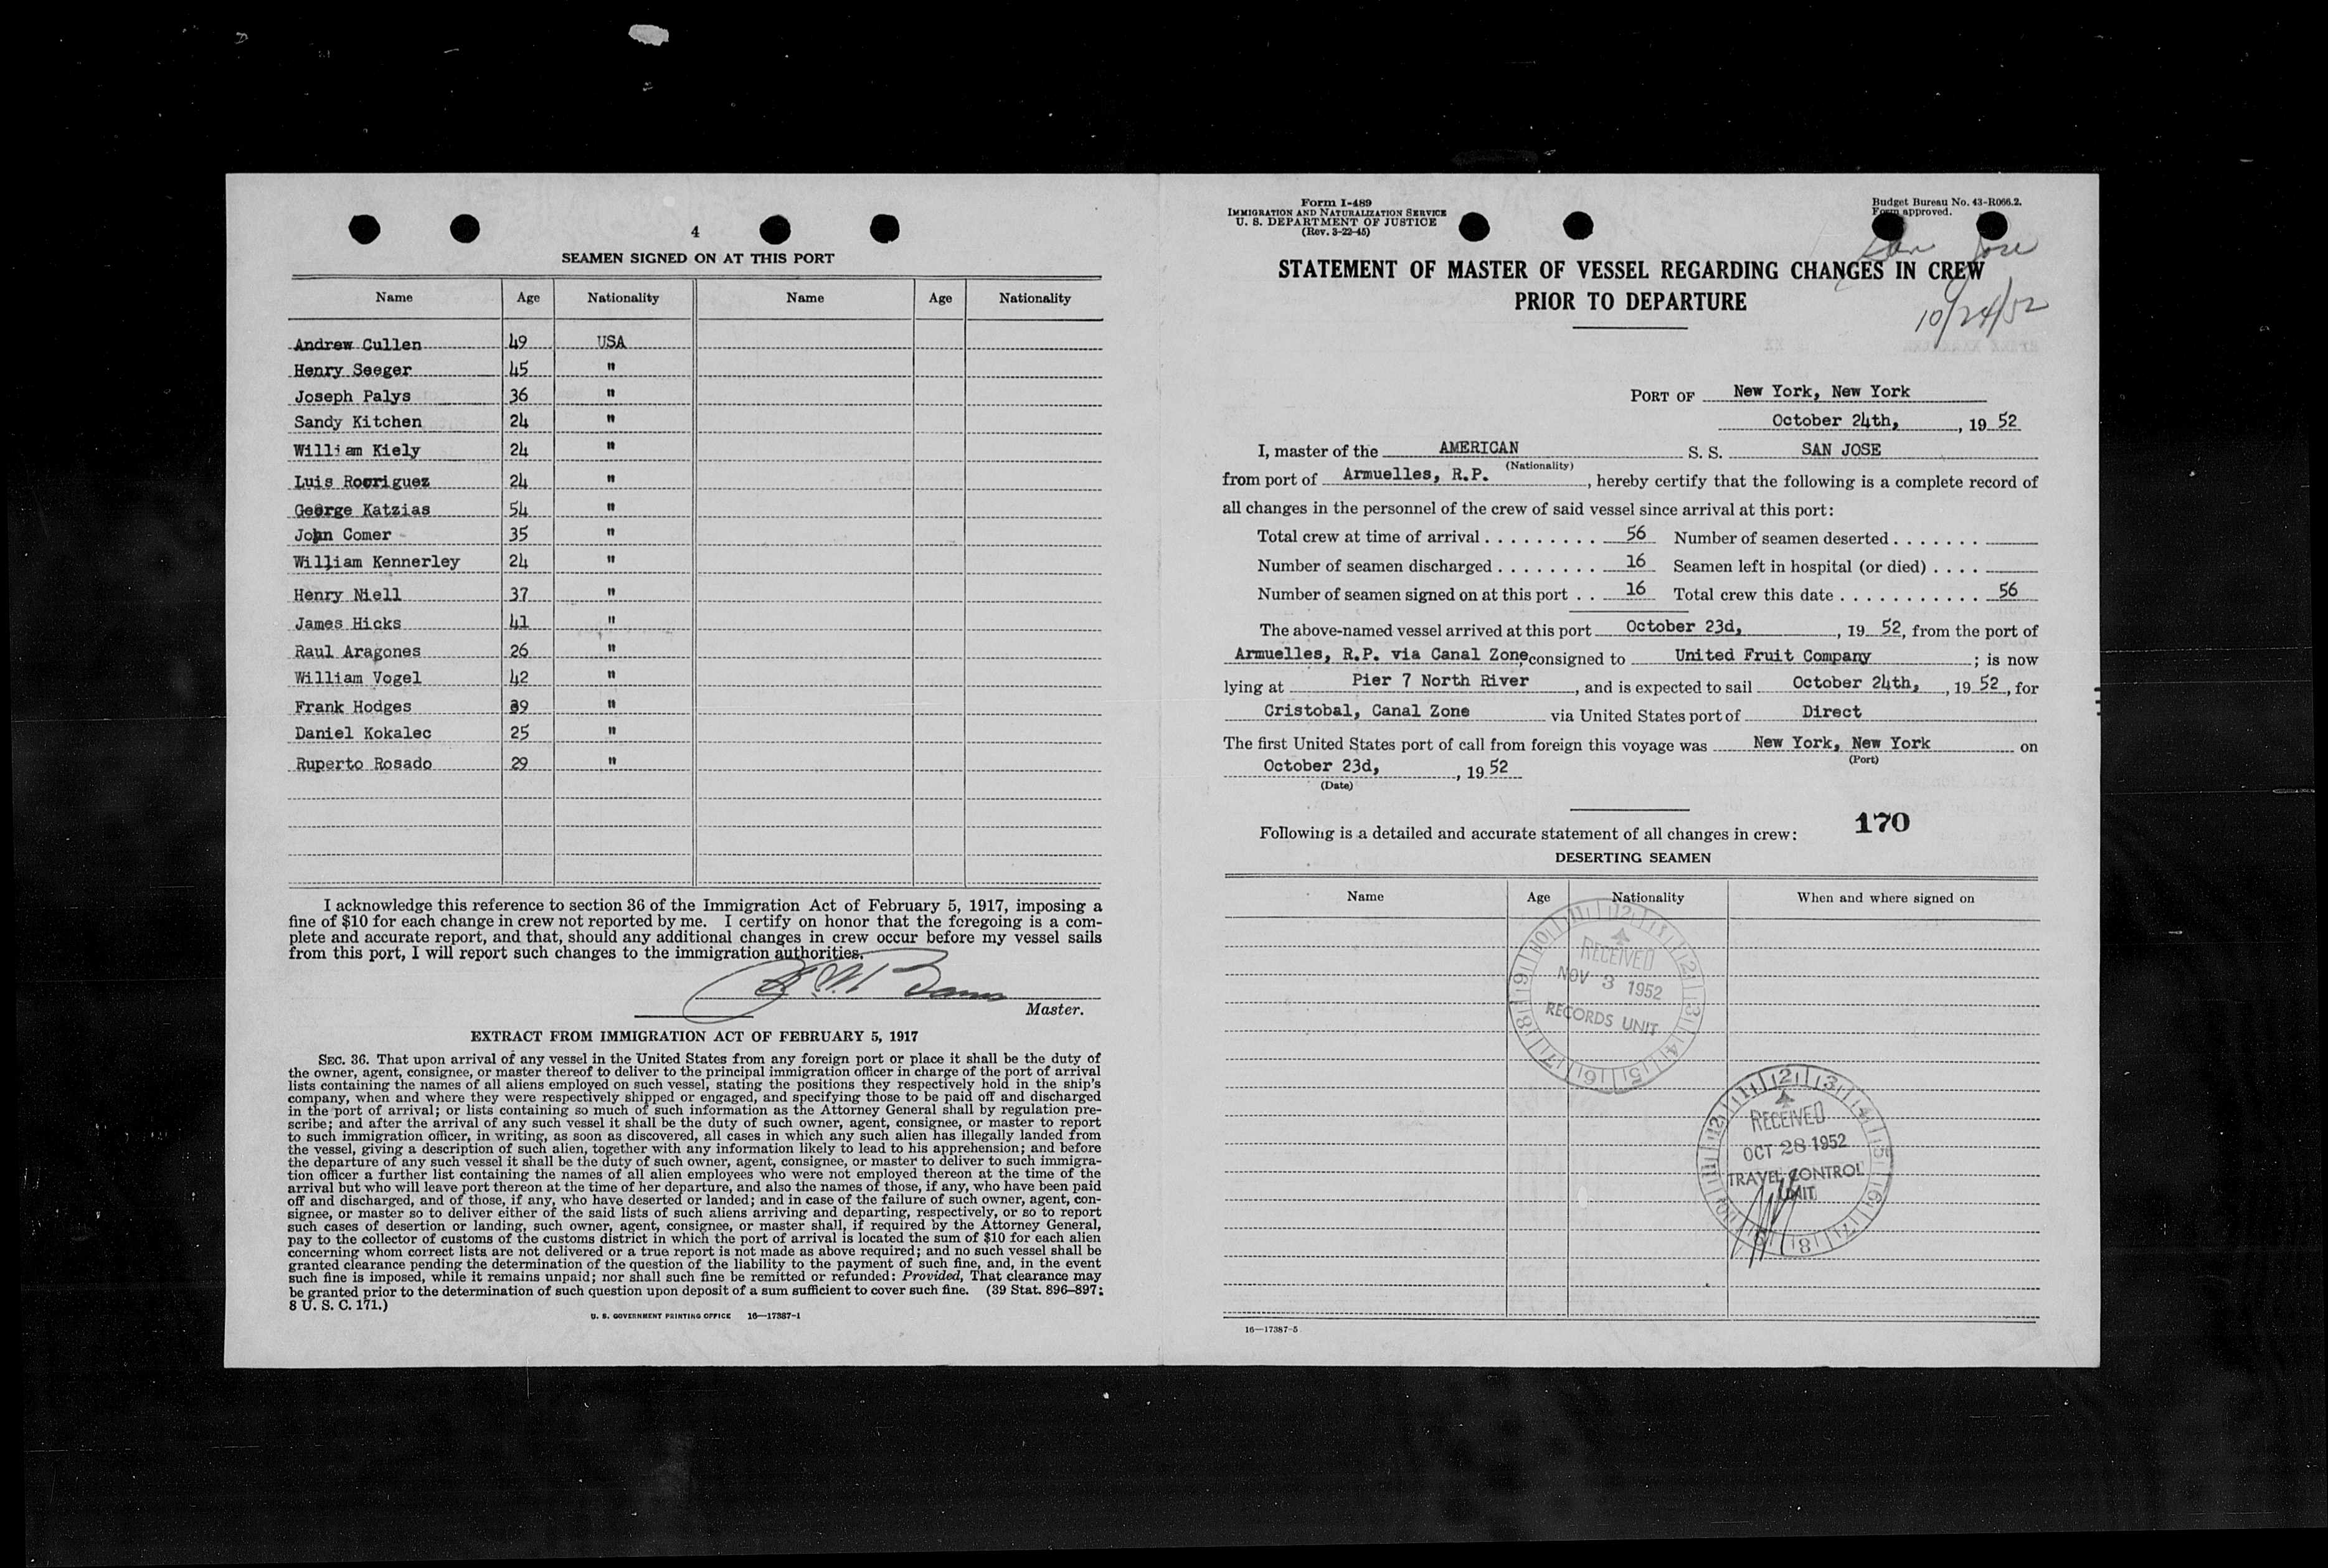 4
SEAMEN SIGNED ON AT THIS PORT
Name Age Nationality Name Age Nationality
Andrew Cullen 49 USA
Henry Seeger 45 "
Joseph Palys 36 "
Sandy Kitchen 24 "
William Kiely 24 "
Luis Rodriguez 24 "
George Katzias 54 "
John Comer 35 "
William Kennerley 24 "
Henry Niell 37 "
James Hicks 41 "
Raul Aragones 26 "
William Vogel 42 "
Frank Hodges 39 "
Daniel Kokalec 25 "
Ruperto Rosado 29 "
I acknowledge this reference to section 36 of the Immigration Act of February 5, 1917, imposing a
fine of $10 for each change in crew not reported by me. I certify on honor that the foregoing is a com-
plete and accurate report, and that, should any additional changes in crew occur before my vessel sails
from this port, I will report such changes to the immigration authorities.
Master.
EXTRACT FROM IMMIGRATION ACT OF FEBRUARY 5, 1917
SEC. 36. That upon arrival of any vessel in the United States from any foreign port or place it shall be the duty of
the owner, agent, consignee, or master thereof to deliver to the principal immigration officer in charge of the port of arrival
lists containing the names of all aliens employed on such vessel, stating the positions they respectively hold in the ship's
company, when and where they were respectively shipped or engaged, and specifying those to be paid off and discharged
in the port of arrival; or lists containing so much of such information as the Attorney General shall by regulation pre-
scribe; and after the arrival of any such vessel it shall be the duty of such owner, agent, consignee, or master to report
to such immigration officer, in writing, as soon as discovered, all cases in which any such alien has illegally landed from
the vessel, giving a description of such alien, together with any information likely to lead to his apprehension; and before
the departure of any such vessel it shall be the duty of such owner, agent, consignee, or master to deliver to such immigra-
tion officer a further list containing the names of all alien employees who were not employed thereon at the time of the
arrival but who will leave port thereon at the time of her departure, and also the names of those, if any, who have been paid
off and discharged, and of those, if any, who have deserted or landed; and in case of the failure of such owner, agent, con-
signee, or master so to deliver either of the said lists of such aliens arriving and departing, respectively, or so to report
such cases of desertion or landing, such owner, agent, consignee, or master shall, if required by the Attorney General,
pay to the collector of customs of the customs district in which the port of arrival is located the sum of $10 for each alien
concerning whom correct lists are not delivered or a true report is not made as above required; and no such vessel shall be
granted clearance pending the determination of the question of the liability to the payment of such fine, and, in the event
such fine is imposed, while it remains unpaid; nor shall such fine be remitted or refunded: Provided, That clearance may
be granted prior to the determination of such question upon deposit of a sum sufficient to cover such fine. (39 Stat. 896-897;
8 U. S. C. 171.)
U. S. GOVERNMENT PRINTING OFFICE 16—17387-1
Form I-489
IMMIGRATION AND NATURALIZATION SERVICE
U. S. DEPARTMENT OF JUSTICE
(Rev. 3-22-45)
Budget Bureau No. 43-R066.2.
Form approved.
San Jose
STATEMENT OF MASTER OF VESSEL REGARDING CHANGES IN CREW
PRIOR TO DEPARTURE
10/24/52
PORT OF New York, New York
October 24th, , 19 52
I, master of the AMERICAN S. S. SAN JOSE
(Nationality)
from port of Armuelles, R.P. , hereby certify that the following is a complete record of
all changes in the personnel of the crew of said vessel since arrival at this port:
Total crew at time of arrival . . . . . . . . . 56 Number of seamen deserted . . . . . . .
Number of seamen discharged . . . . . . . . 16 Seamen left in hospital (or died) . . . .
Number of seamen signed on at this port . . 16 Total crew this date . . . . . . . . . . . . 56
The above-named vessel arrived at this port October 23d, , 19 52, from the port of
Armuelles, R.P. via Canal Zone, consigned to United Fruit Company ; is now
lying at Pier 7 North River , and is expected to sail October 24th, , 19 52 , for
Cristobal, Canal Zone via United States port of Direct
The first United States port of call from foreign this voyage was New York, New York on
(Port)
October 23d, , 19 52
(Date)
170
Following is a detailed and accurate statement of all changes in crew:
DESERTING SEAMEN
Name Age Nationality When and where signed on
RECEIVED
NOV 3 1952
RECORDS UNIT
RECEIVED
OCT 28 1952
TRAVEL CONTROL
UNIT
16—17387-5